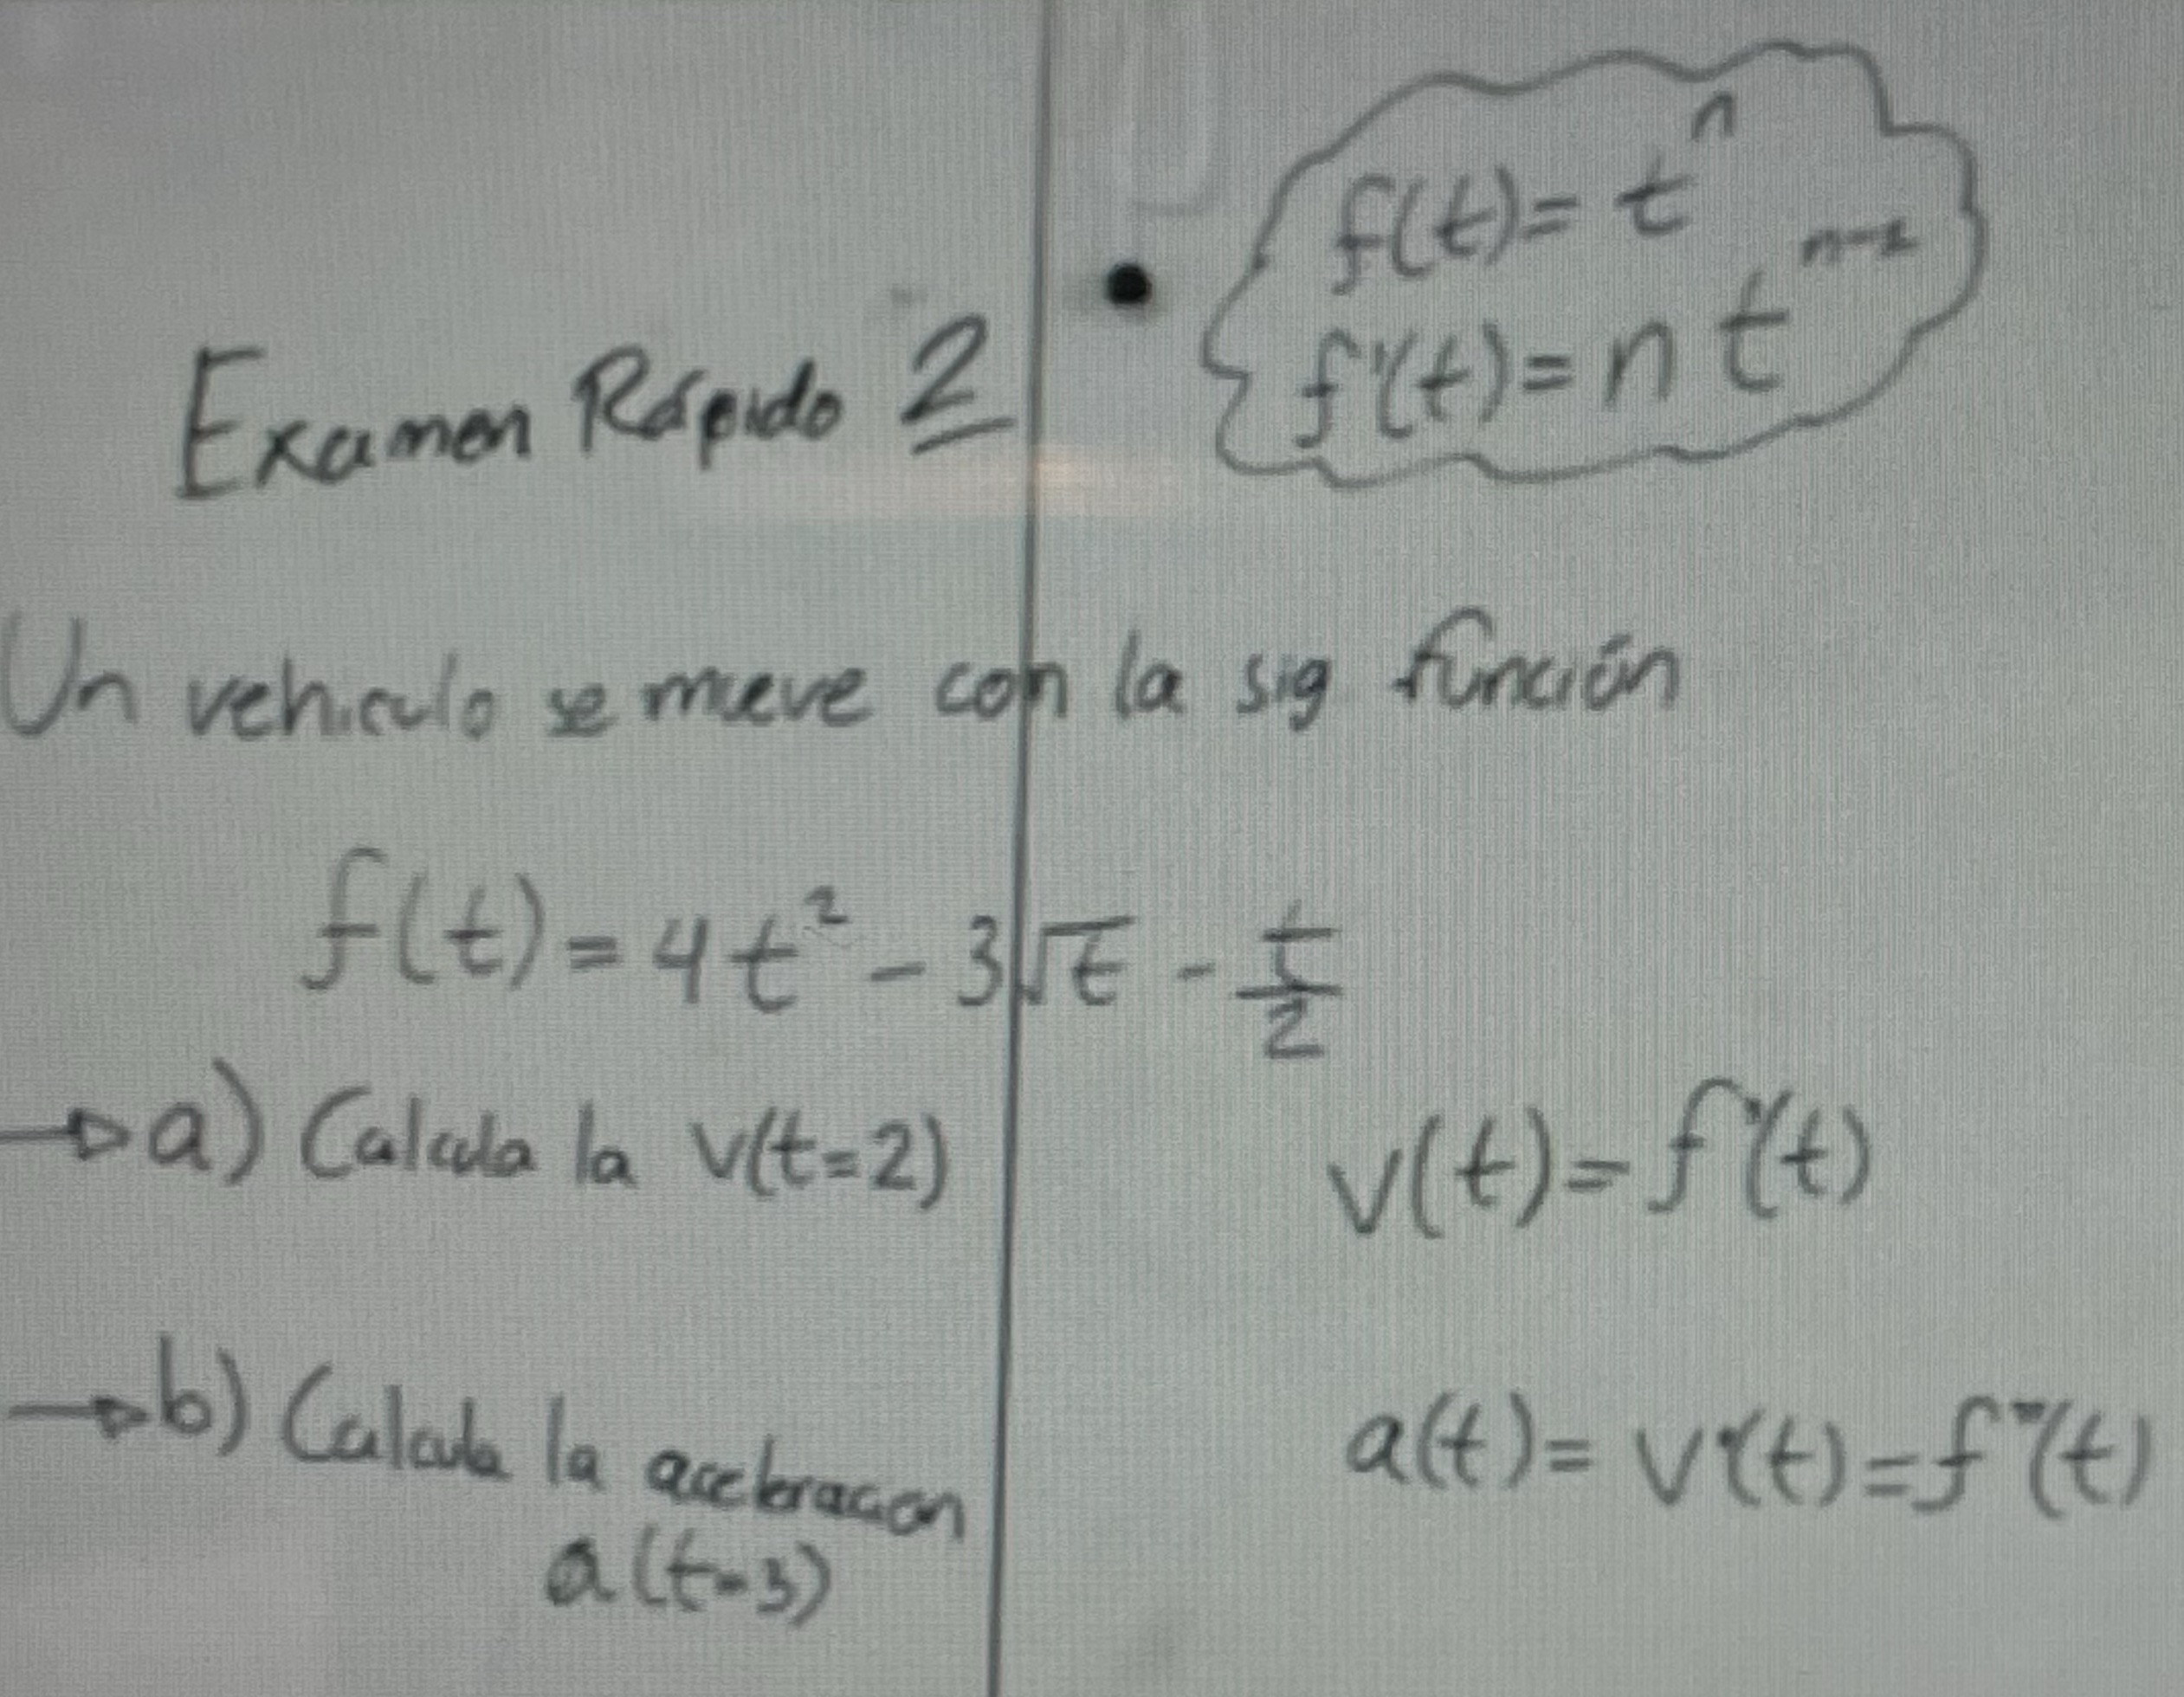 f(t)= t^n
f'(t)= n t^{n-1}
Examen Rápido 2
Un vehiculo se mueve con la sig función
f(t) = 4t² - 3√t - t/2
→ a) Calcula la v(t=2)
v(t)= f'(t)
→ b) Calcula la aceleracion
a(t=3)
a(t)= v'(t)=f''(t)